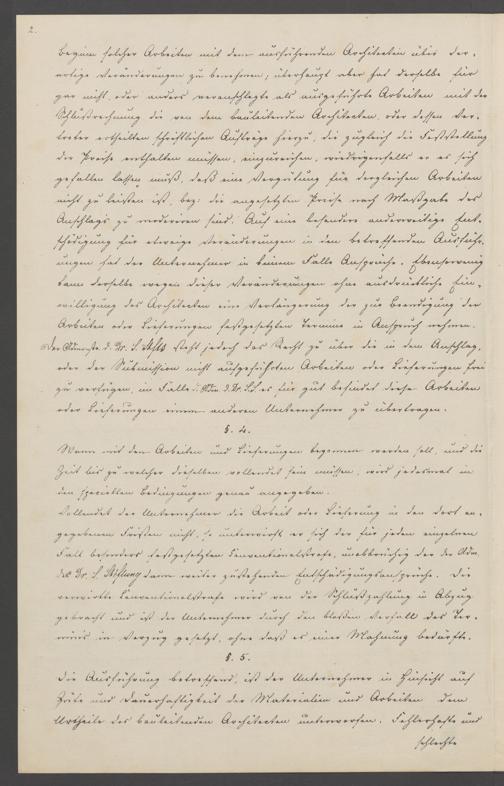 2.
Beginn solcher Arbeiten mit dem ausführenden Architecten über der-
artige Veränderungen zu benehmen; überhaupt aber hat derselbe für
gar nicht, oder anders veranschlagte als ausgeführte Arbeiten mit der
Schlußrechnung die von dem bauleitenden Architecten, oder dessen Ver-
treter ertheilten schriftlichen Aufträge hierzu, die zugleich die Feststellung
der Preise enthalten müssen, einzureichen, widrigenfalls er es sich
gefallen lassen muß, daß eine Vergütung für dergleichen Arbeiten
nicht zu leisten ist, bez. die angesetzten Preise nach Maßgabe des
Anschlags zu moderiren sind. Auch eine besondere anderweitige Ent-
schädigung für etwaige Veränderungen in den betreffenden Ausführ-
ungen hat der Unternehmer in keinem Falle Ansprüche. Ebensowenig
kann derselbe wegen dieser Veränderungen ohne ausdrückliche Ein-
willigung des Architecten eine Verlängerung der zur Beendigung der
Arbeiten oder Lieferungen festgesetzten Termine in Anspruch nehmen.
Der d. Dr. S. steht jedoch das Recht zu über die in dem Anschlag,
oder der Submission nicht aufgeführten Arbeiten oder Lieferungen frei
zu verfügen, im Falle d. Dr. es für gut befindet diese Arbeiten
oder Lieferungen einem anderen Unternehmer zu übertragen.
§. 4.
Wann mit den Arbeiten und Lieferungen begonnen werden soll, und die
Zeit bis zu welcher dieselben vollendet sein müssen, wird jedesmal in
den speciellen Bedingungen genau angegeben.
Vollendet der Unternehmer die Arbeit oder Lieferung in den dort an-
gegebenen Fristen nicht, so unterwirft er sich der für jeden einzelnen
Fall besonders festgesetzten Conventionalstrafe, unabbrüchig der der Adm.
der Dr. S. Stiftung dann weiter zustehenden Entschädigungsansprüche. Die
verwirkte Conventionalstrafe wird von der Schlußzahlung in Abzug
gebracht und ist der Unternehmer durch den bloßen Verfall des Ter-
mins in Verzug gesetzt, ohne daß es einer Mahnung bedürfte.
§. 5.
Die Ausführung betreffend, ist der Unternehmer in Hinsicht auf
Güte und Dauerhaftigkeit der Materialien und Arbeiten dem
Urtheile des bauleitenden Architecten unterworfen. Fehlerhafte und
schlechte